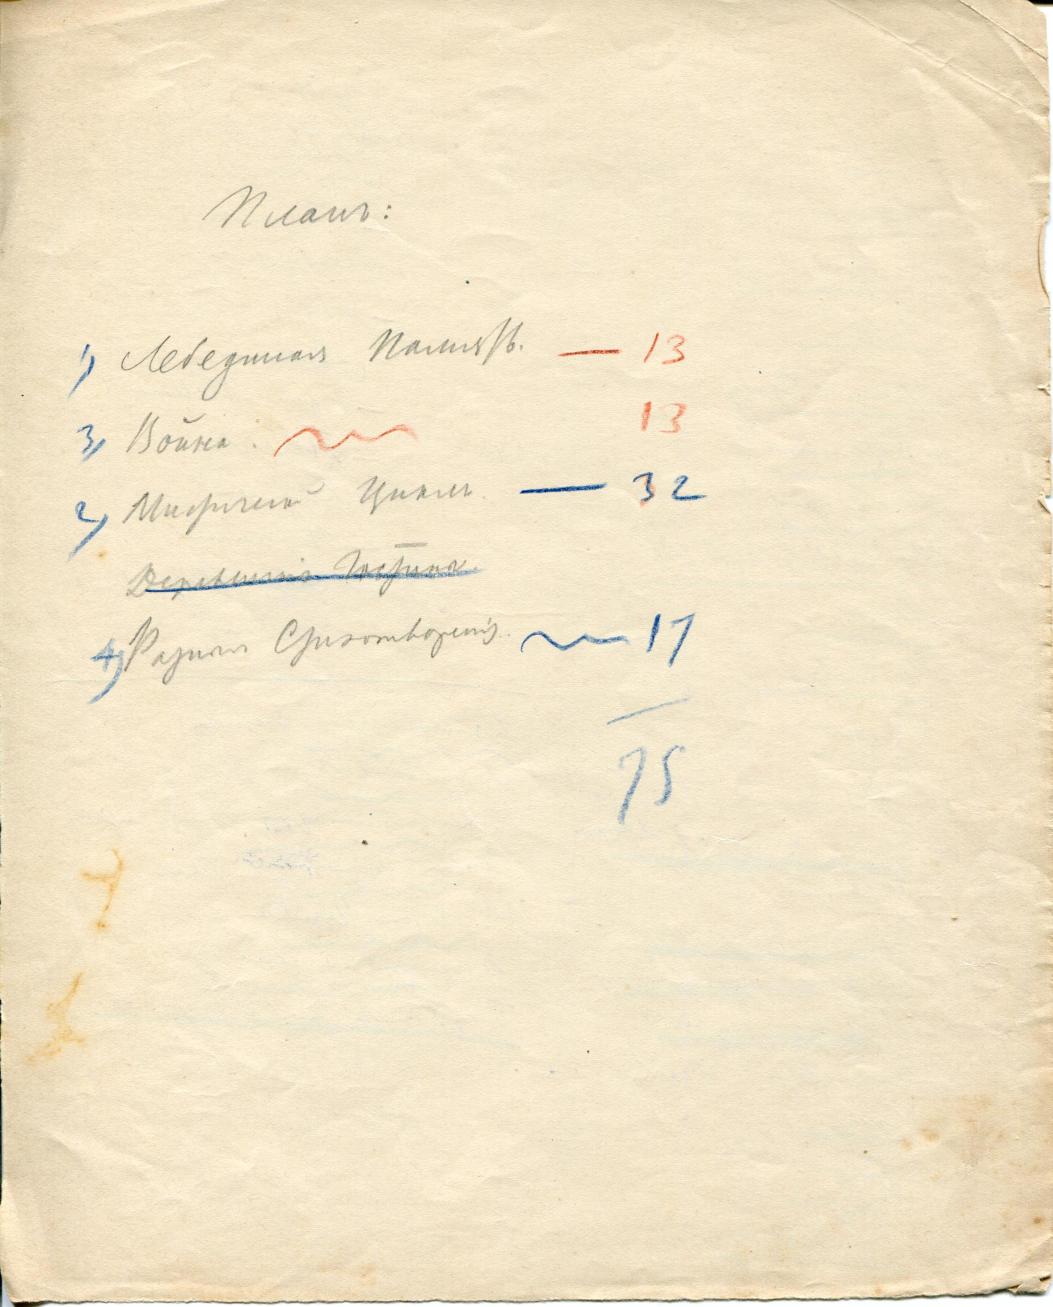 Планъ:
1) Лебединая Память. — 13
3) Война. 13
2) Мистический Циклъ. — 32
4) Разныя Стихотворенія. 17
75